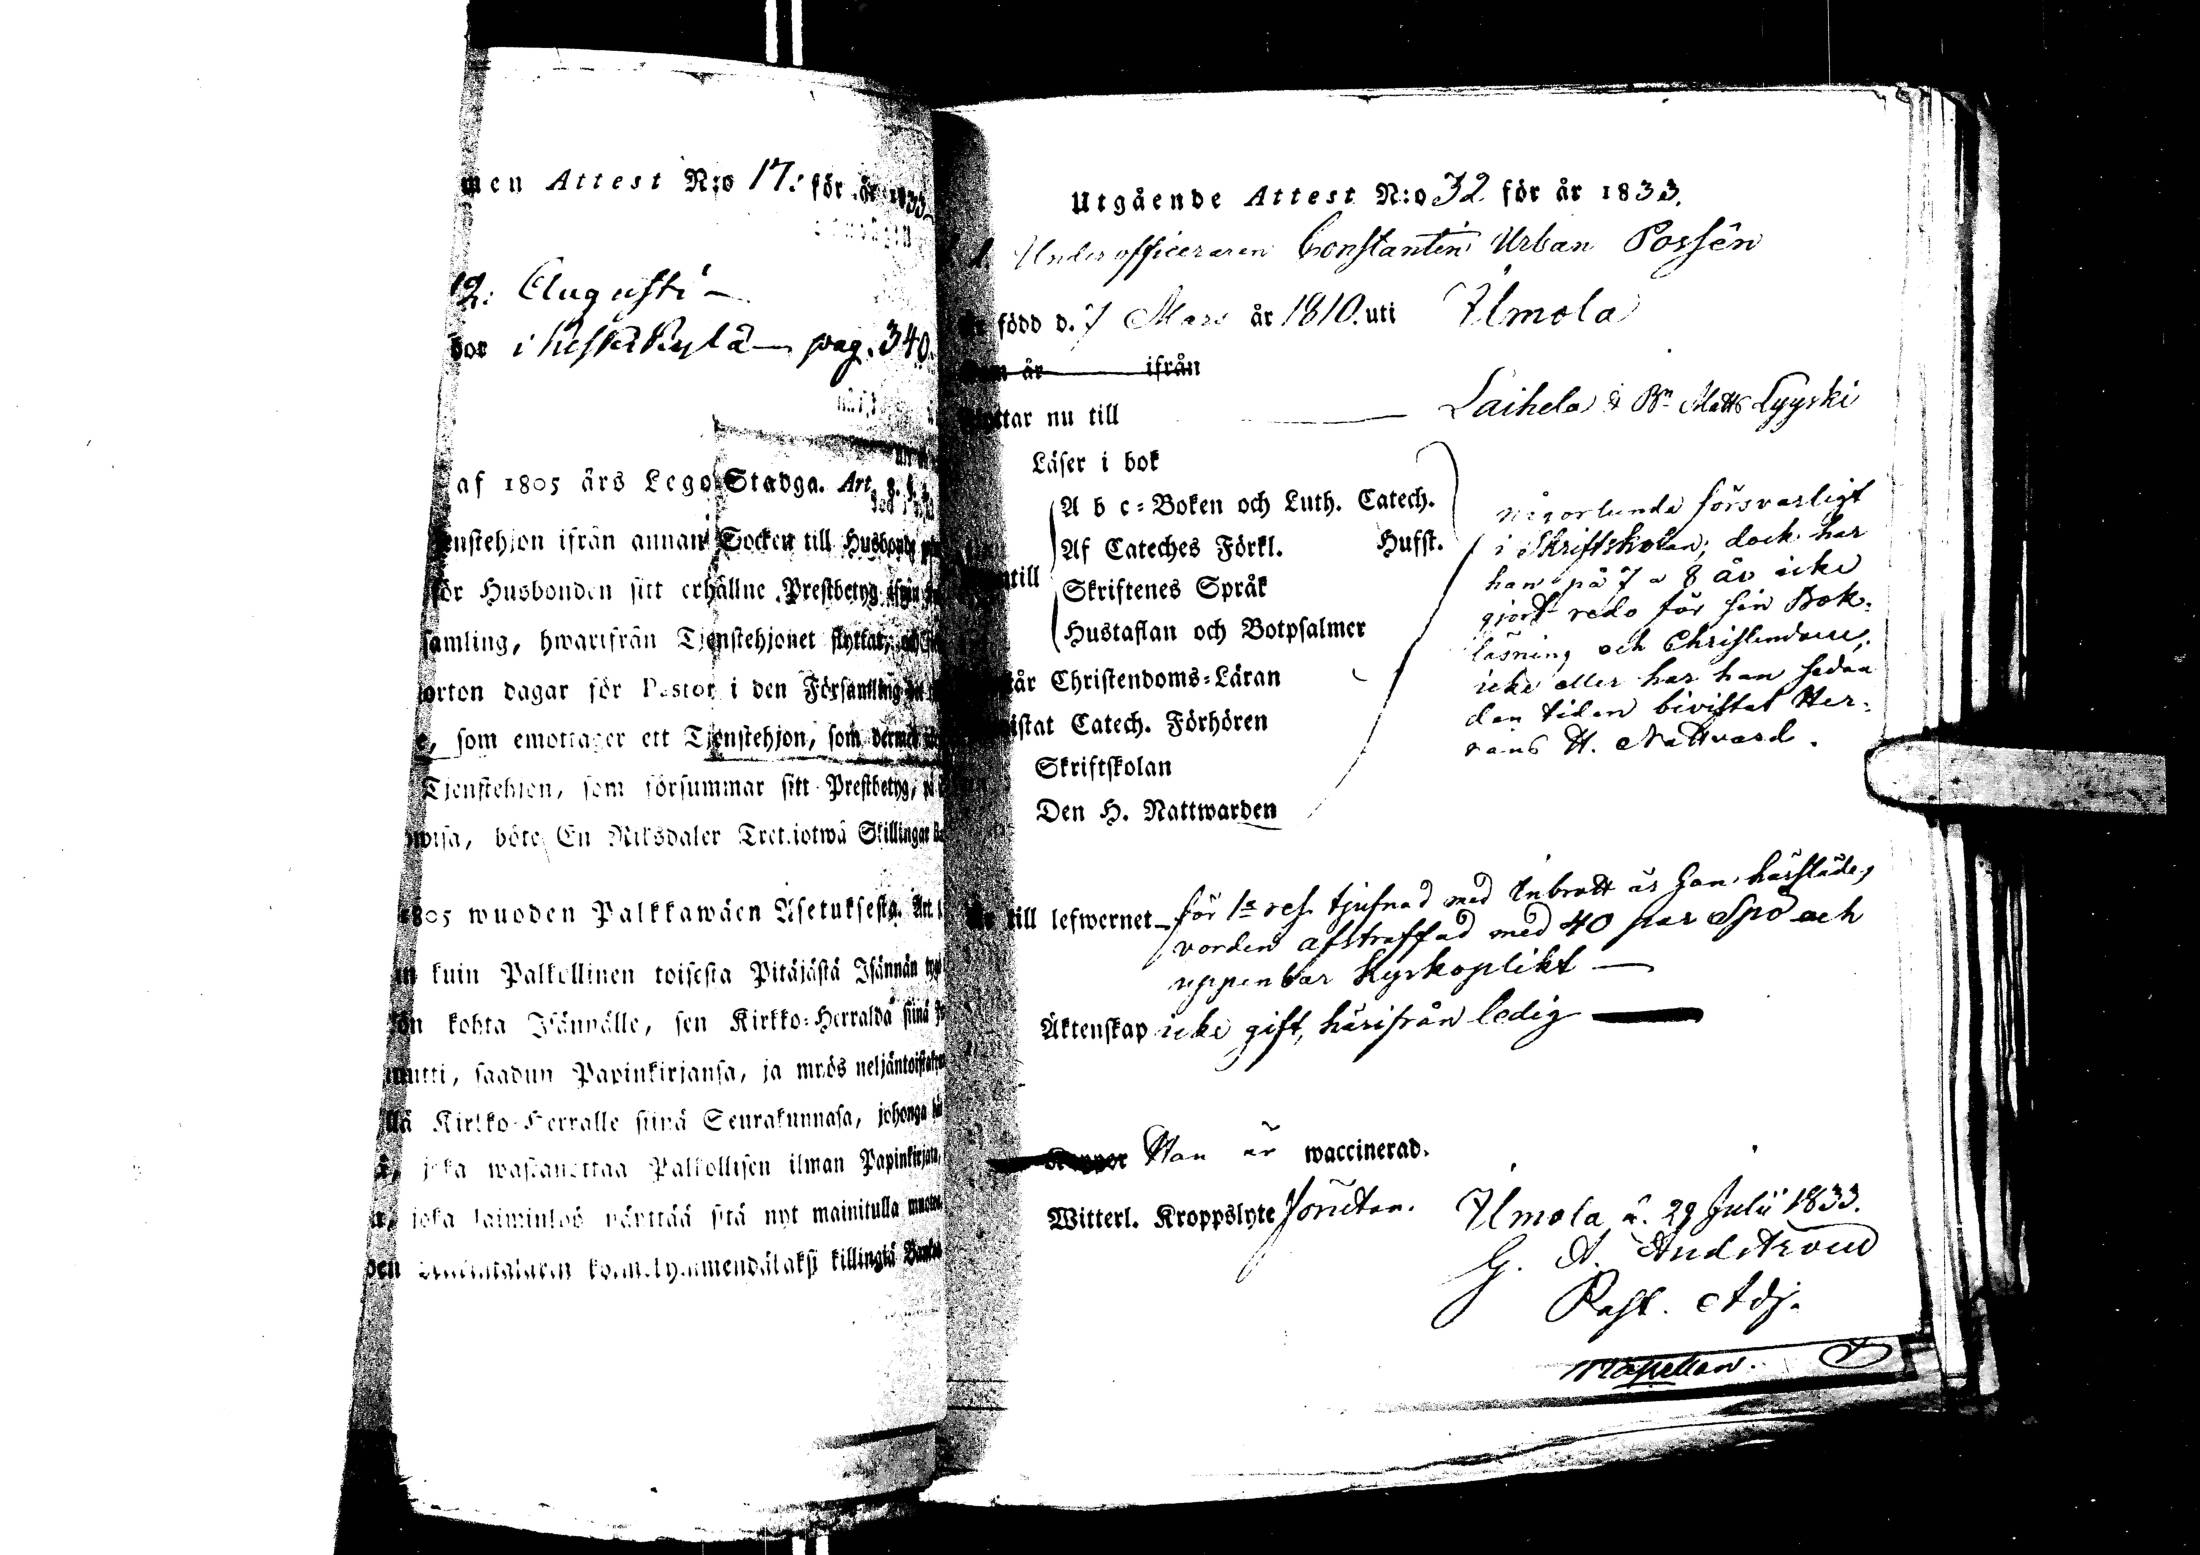 men Attest N:o 17: för år 1833
12: Augusti
bor i Keskikylä pag. 340.
af 1805 års Lego Stadga. Art.
enstehjon ifrån annan Socken till Husbonde
för Husbonden sitt erhållne Prestbetyg ifrån
samling, hwarifrån Tjenstehjonet flyttat,
jorton dagar för Pastor i den Församling
e, som emottager ett Tjenstehjon, som dermed
Tjenstehjon, som försummar sitt Prestbetyg,
wisa, böte En Riksdaler Trettiotwå Skillingar
1805 wuoden Palkkawäen Asetuksesta. Art.
in kuin Palkollinen toisesta Pitäjästä Isännän
kohta Isännälle, sen Kirkko-Herralda siinä
mutti, saadun Papinkirjansa, ja myös neljäntoista
llä Kirkko-Herralle siinä Seurakunnasa, johonga
ä, joka wastanottaa Palkollisen ilman Papinkirjata,
a, joka laiminlyö näyttää sitä nyt mainitulla
killingiä
Utgående Attest N:o 32 för år 1833.
Underofficeraren Constantin Urban Possén
född d. 7 Mars år 1810. uti Ilmola
år ifrån
ttar nu till Laihela Matts Lyyski
Läser i bok
A b c-Boken och Luth. Catech.
Af Cateches Förkl. Husst.
ntill Skriftenes Språk
Hustaflan och Botpsalmer
tår Christendoms-Läran
istat Catech. Förhören
Skriftskolan
Den H. Nattwarden
någorlunda försvarligt
i Skriftskolan; dock har
han på 7 a 8 år icke
gjort redo för sin Bok-
läsning och Christendom,
icke eller har han sedan
den tiden bivistat Her-
rans H. Nattvard.
Är till lefwernet för 1a res. tjufnad med Inbrott är han härstädes
vorden afstraffad med 40 par Spö och
uppenbar Kyrkoplikt
Äktenskap icke gift, härifrån ledig
Koppor Han är waccinerad.
Witterl. Kroppslyte
Ilmola d. 29 Julii 1833.
G. A.
Past. Adj.
Kapellan.